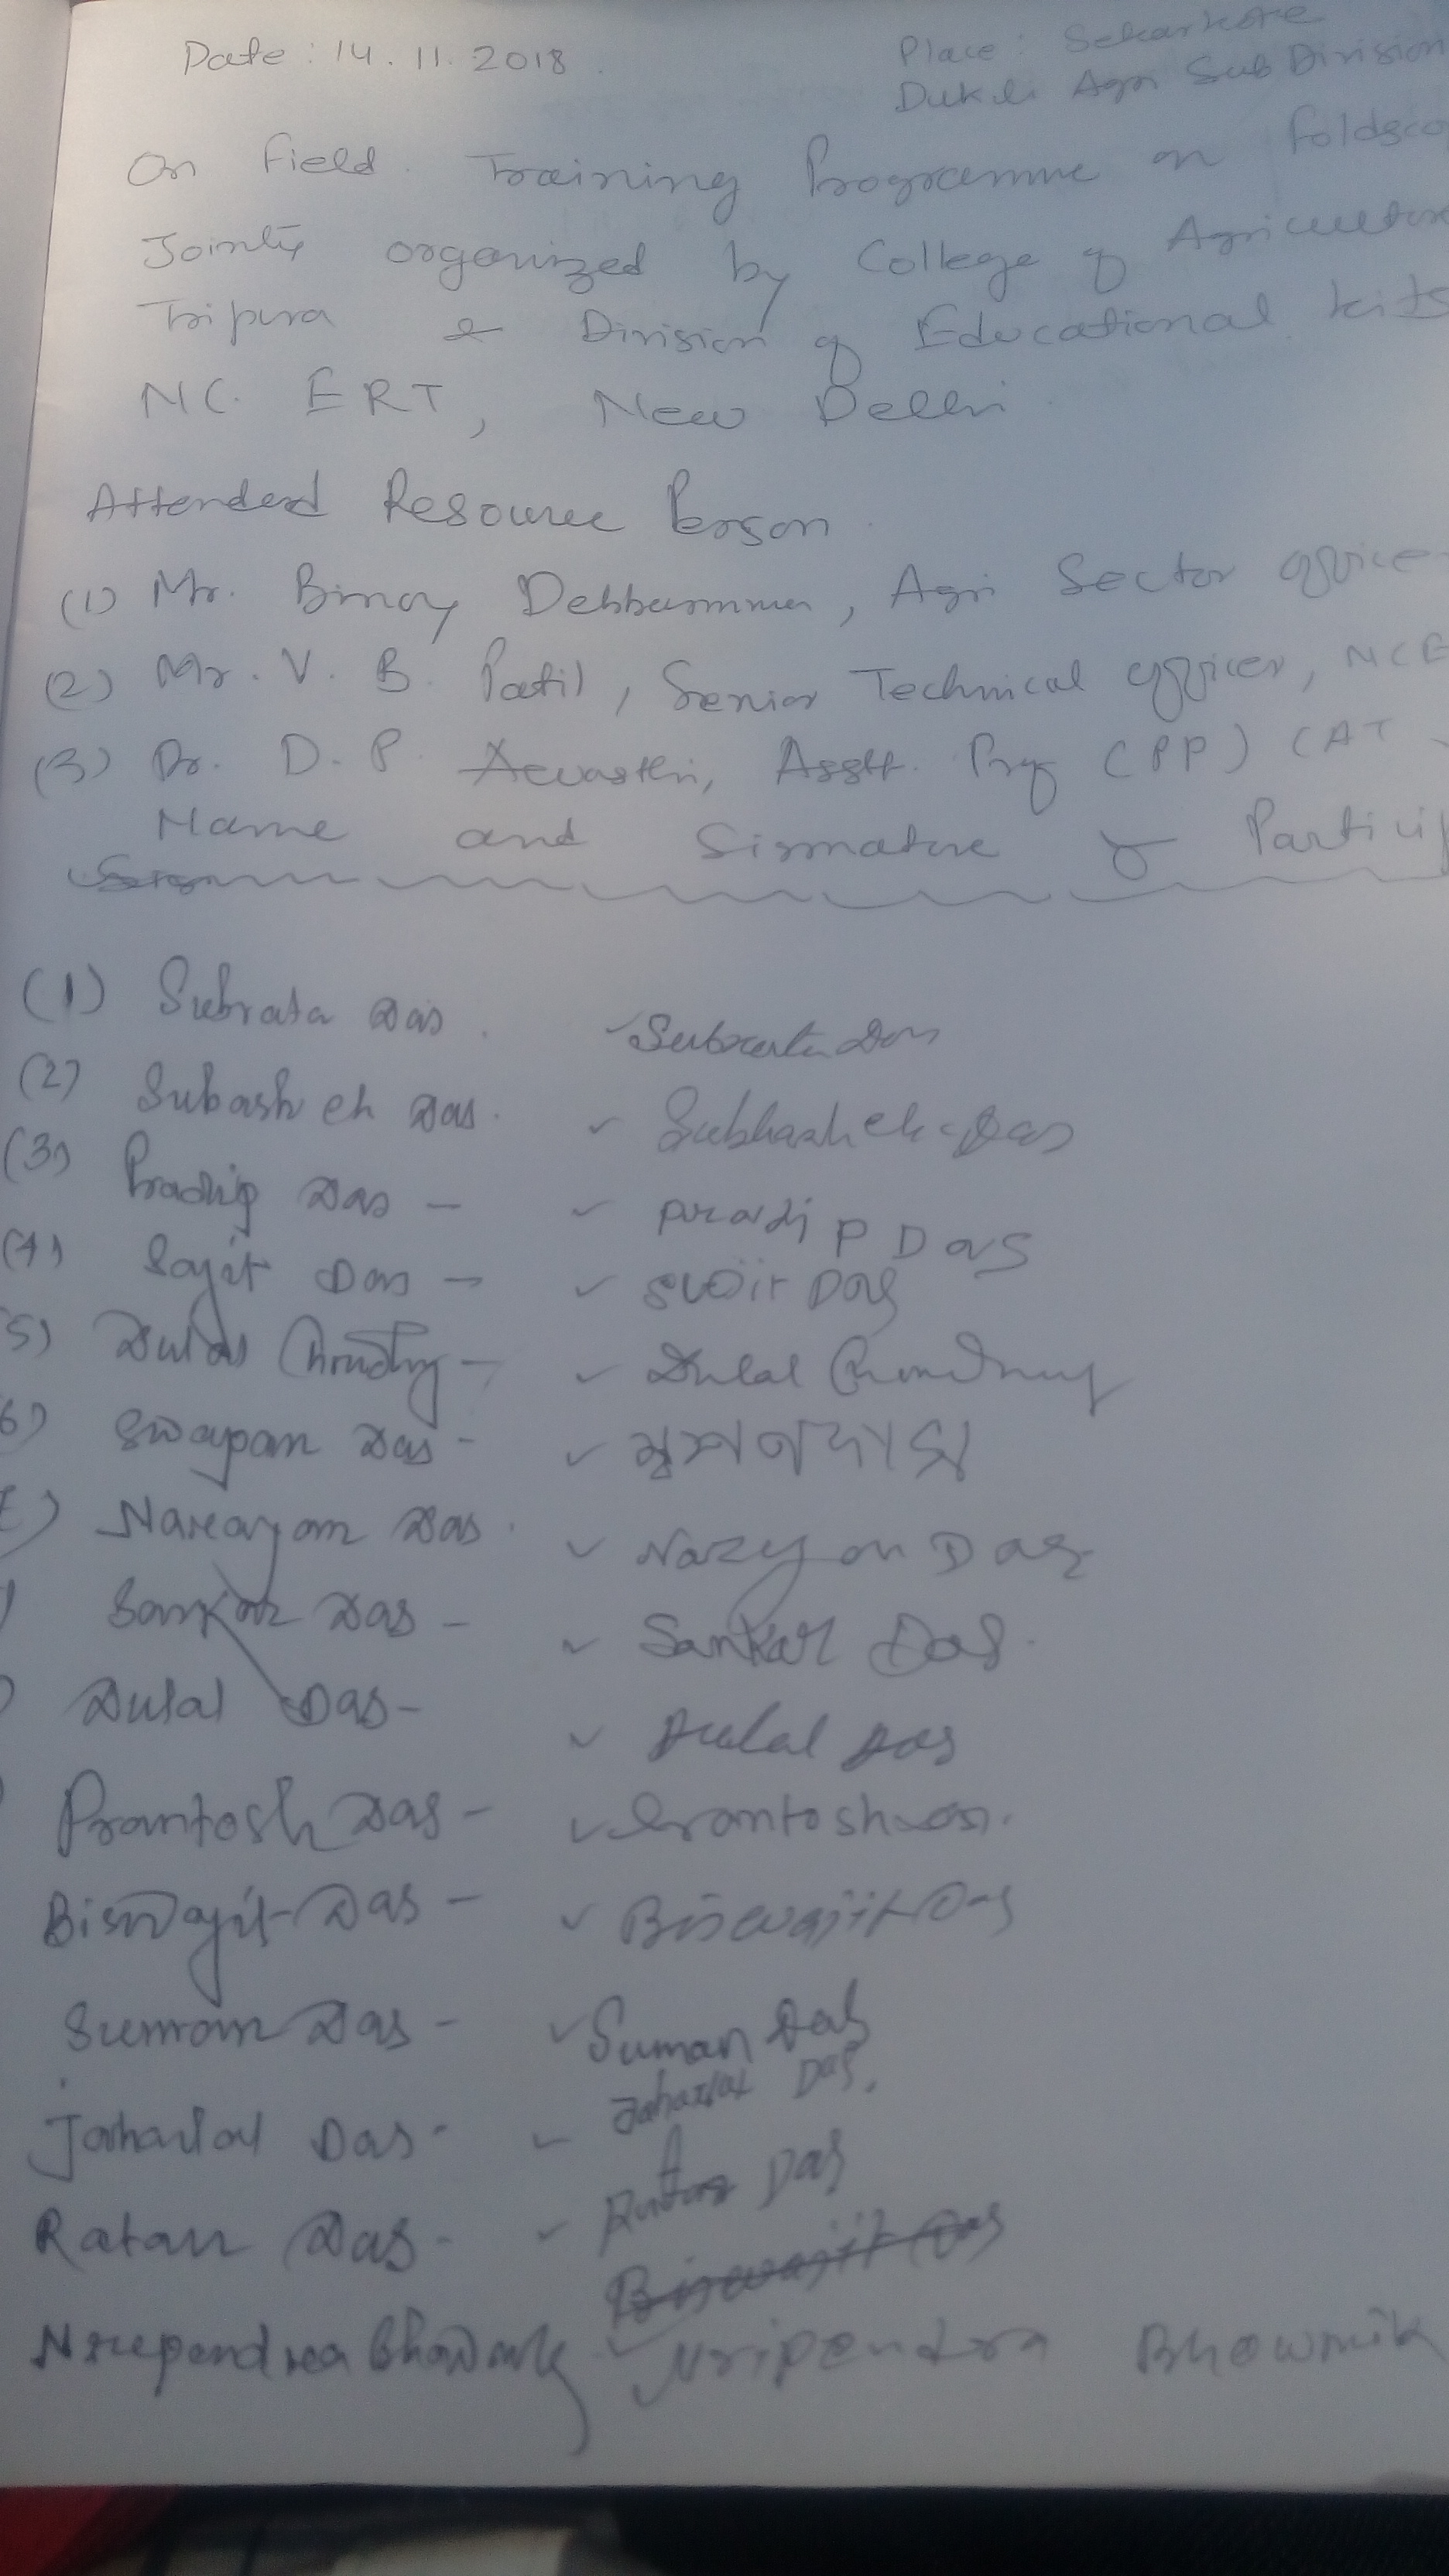 Date : 14.11.2018
Place : Sekarkote
Dukli Agri Sub Division
On field Training Programme on foldsco
Jointly organized by College of Agricultur
Tripura & Division of Educational kits
NC. ERT, New Delhi
Attended Resource Person
(1) Mr. Binoy Debbarmma, Agri Sector office
(2) Mr. V. B. Patil, Senior Technical officer, NCE
(3) Dr. D. P. Awasthi, Asstt. Prof (PP) CAT
Name and Signature of Particip
(1) Subrata Das. Subrata Das
(2) Subash ch Das. Subhash ch. Das
(3) Pradip Das - Pradip Das
(4) Sajit Das - Das
5) Dulal Choudhury - Dulal Choudhury
6) Swapan Das - স্বপন দাস
) Narayan Das. Narayan Das
) Sankar Das - Sankar Das.
) Dulal Das - Dulal Das
Prantosh Das - Prantosh Das.
Biswajit Das - Biswajit Das
Suman Das - Suman Das
Jaharlal Das - Jaharlal Das.
Ratan Das - Ratan Das
Biswajit Das
Nripendra Bhowmik Nripendra Bhowmik